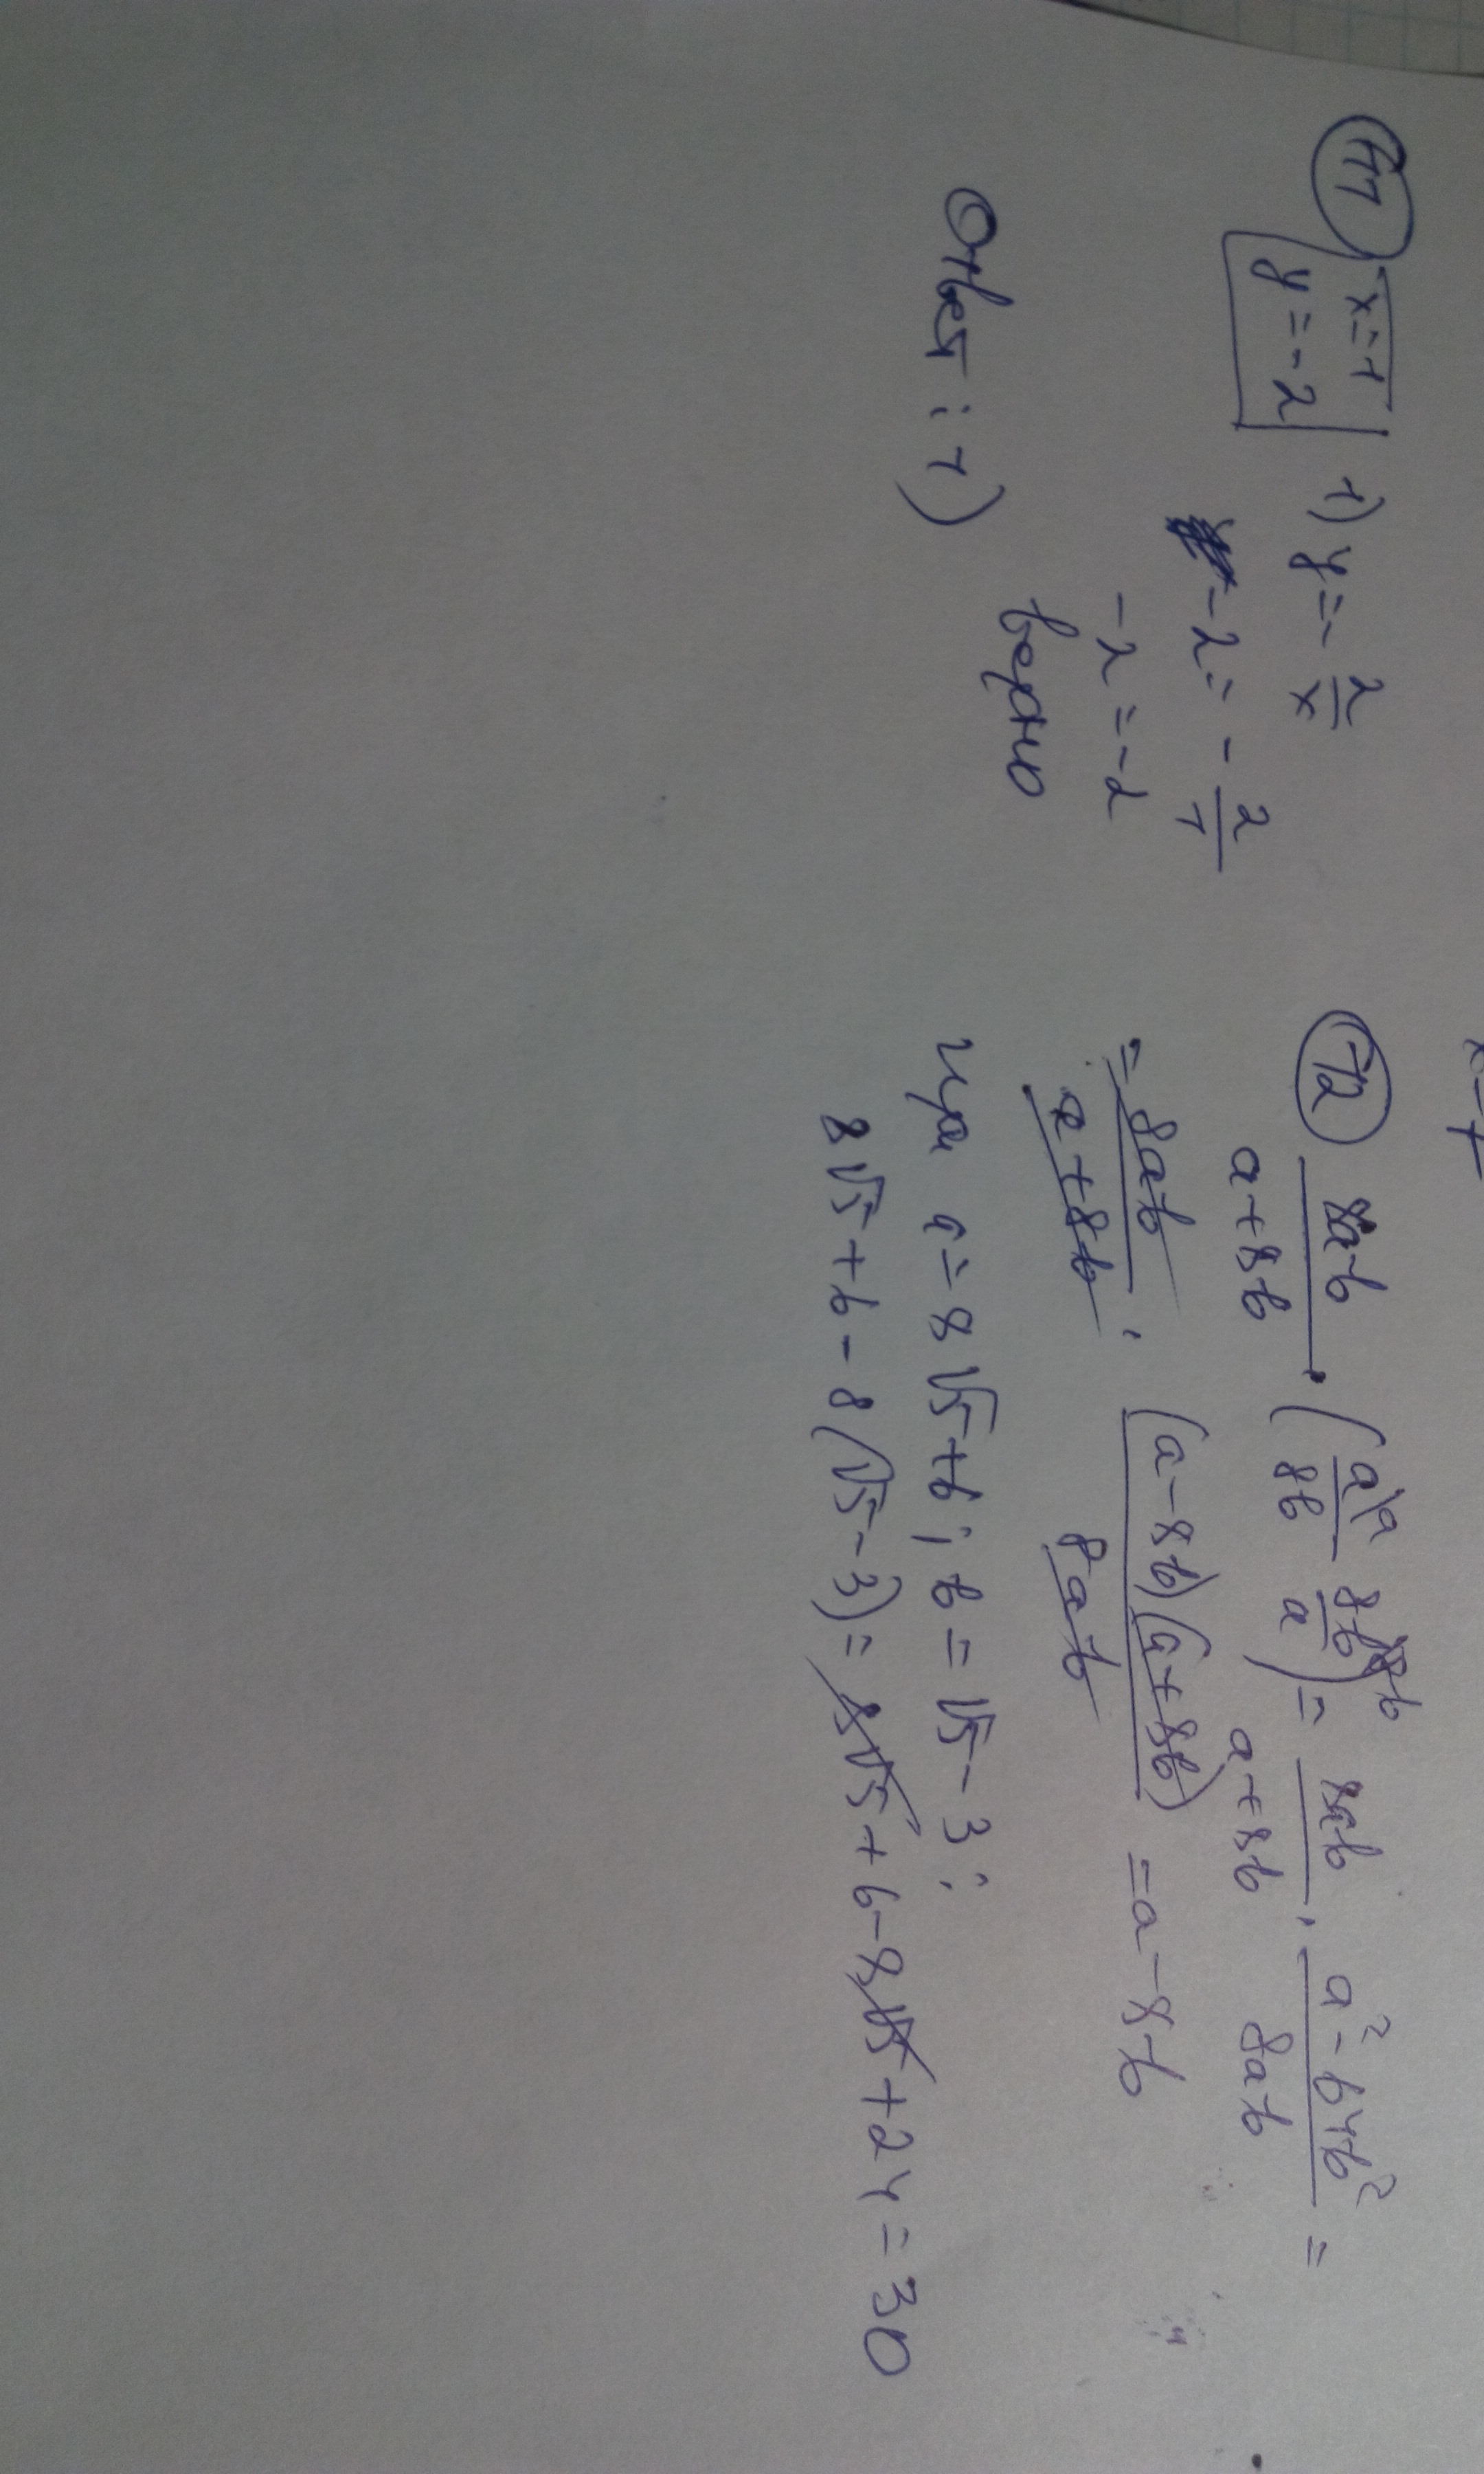 11 x=1
y=-2
1) y=-2/x
-2=-2/1
-2=-2
верно
Ответ: 1)
12 8ab/(a+8b) · (a/8b - 8b/a) = 8ab/(a+8b) · (a²-64b²)/8ab =
= 8ab/(a+8b) · (a-8b)(a+8b)/8ab = a-8b
при a=8√5+6; b=√5-3:
8√5+6-8(√5-3)=8√5+6-8√5+24=30